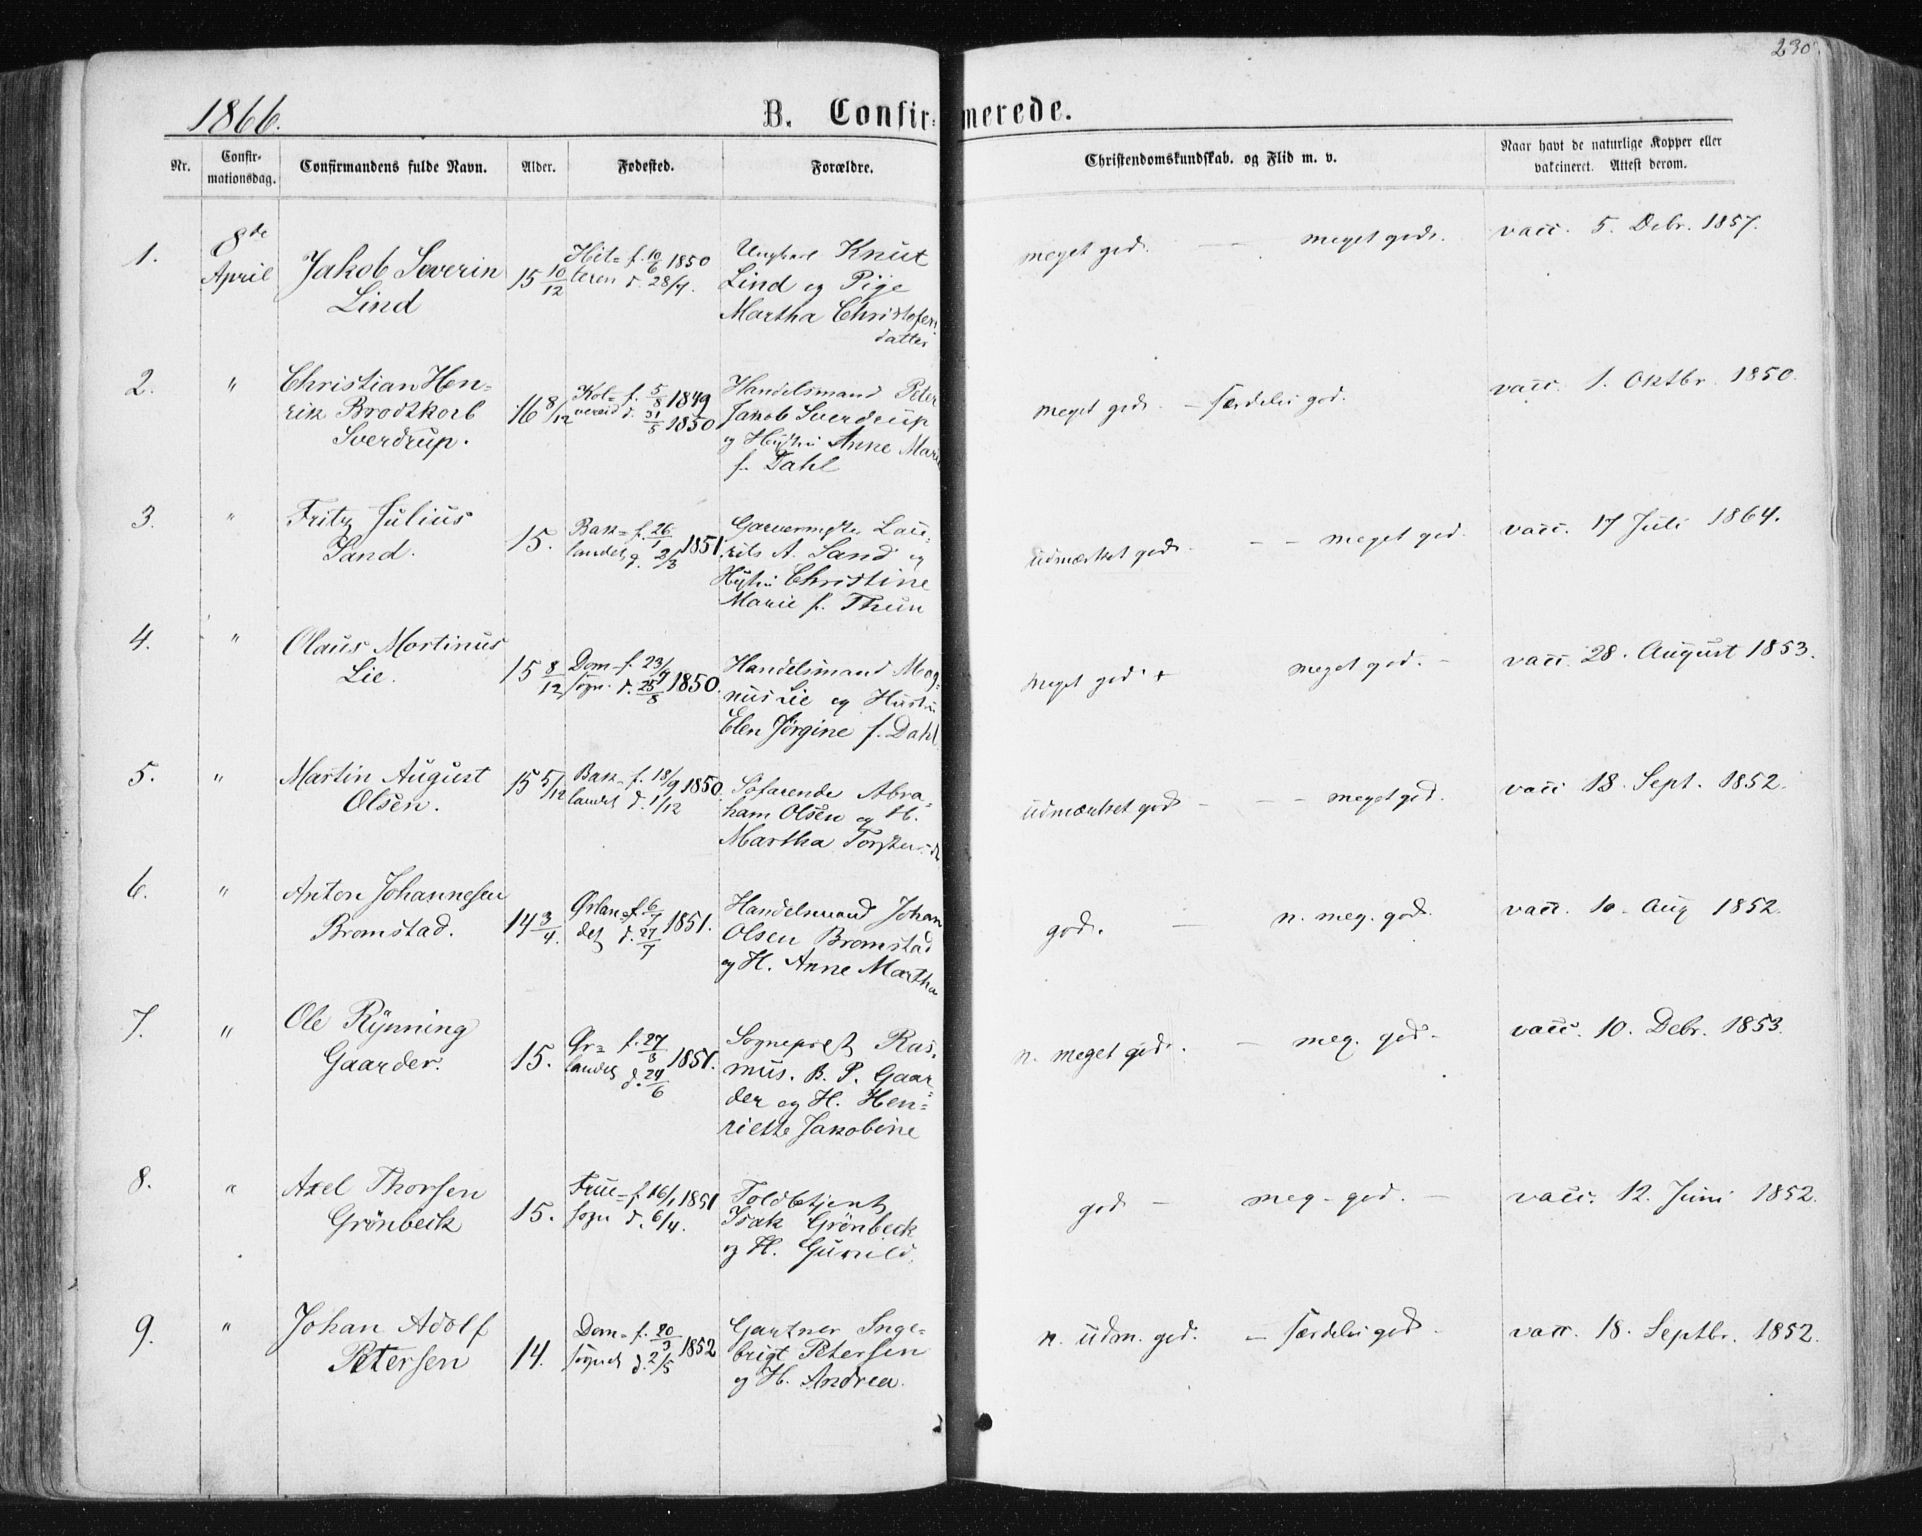 230
1866.
B. Confirmerede.
Nr.
Confirmationsdag.
Confirmandens fulde Navn.
Alder.
Fødested.
Forældre.
Christendomskundskab, og Flid m. v.
Naar havt de naturlige Kopper eller
vakcineret. Attest derom.
1.
8de
April
Jakob Severin
Lind
15 10/12
Hit= f. 10/6 1850
teren d. 28/7.
Ungkarl Knut
Lind og Pige
Martha Christofers
datter
meget god. — — meget god.
vacc. 5. Debr. 1857.
2.
"
Christian Hen=
rik Brodtkorb
Sverdrup.
16 8/12
Kol= f. 5/8 1849
vereid d. 31/5 1850
Handelsmand Peter
Jakob Sverdrup
og Hustru Anne Marie
f. Dahl
meget god. — særdeles god.
vacc. 1. Oktbr. 1850.
3.
"
Fritz Julius
Sand.
15.
Bak= f. 26/1 1851.
landet d. 2/3
Garvermester Lau=
rits A. Sand og
Hustru Christine
Marie f. Thun
udmærket god. — — meget god.
vacc. 17 Juli 1864.
4.
"
Olaus Mortinus
Lie.
15 8/12
Dom= f. 23/7
sogn. d. 25/8 1850.
Handelsmand Mag=
nus Lie og Hustru
Elen Jørgine f. Dahl
meget god + meget god. —
vacc. 28. August 1853.
5.
"
Martin August
Olsen.
15 5/12
Bak= f. 18/9 1850.
landet d. 1/12
Søfarende Abra=
ham Olsen og H.
Martha Torstensd.
udmærket god — — — meget god.
vacc 18. Sept. 1852.
6.
"
Anton Johannesen
Bromstad.
14 3/4.
Ørlan= f. 6/7 1851.
det d. 27/7
Handelsmand Johan
Olsen Bromstad
og H. Anne Martha
god. — n. meg. god.
vacc. 10. Aug 1852.
7.
"
Ole Rynning
Gaarder.
15.
Ør= f. 27/3 1851.
landet d. 24/6
Sogneprest Ras=
mus. B. P. Gaar=
der og H. Hen=
riette Jakobine
n. meget god. — meg. god. —
vacc. 10. Debr. 1853.
8.
"
Axel Thorsen
Grönbeck
15.
Frue= f. 16/1 1851
sogn d. 6/4.
Toldbetjent
Isak Grönbeck
og H. Gunild.
god — meg. god. —
vacc. 12. Juni 1852.
9.
"
Johan Adolf
Petersen
14.
Dom= f. 20/3 1852
sognet d. 2/5
Gartner Inge=
brigt Petersen
og H. Andrea.
n. udm. god. — særdeles god.
vacc. 18. Septbr. 1852.